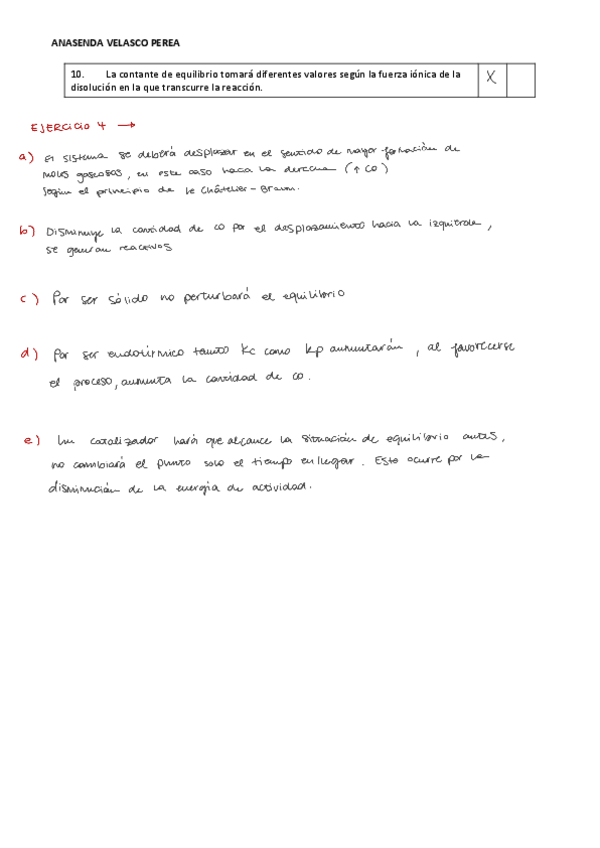 ANASENDA VELASCO PEREA
10. La contante de equilibrio tomará diferentes valores según la fuerza iónica de la X
disolución en la que transcurre la reacción.
EJERCICIO 4 →
a) El sistema se deberá desplazar en el sentido de mayor formación de
moles gaseosos, en este caso hacia la derecha (↑ CO)
según el principio de le Châtelier-Braun.
b) Disminuye la cantidad de CO por el desplazamiento hacia la izquierda,
se generan reactivos
c) Por ser sólido no perturbará el equilibrio
d) Por ser endotérmico tanto Kc como Kp aumentarán, al favorecerse
el proceso, aumenta la cantidad de CO.
e) Un catalizador hará que alcance la situación de equilibrio antes,
no cambiará el punto solo el tiempo en llegar. Esto ocurre por la
disminución de la energía de actividad.